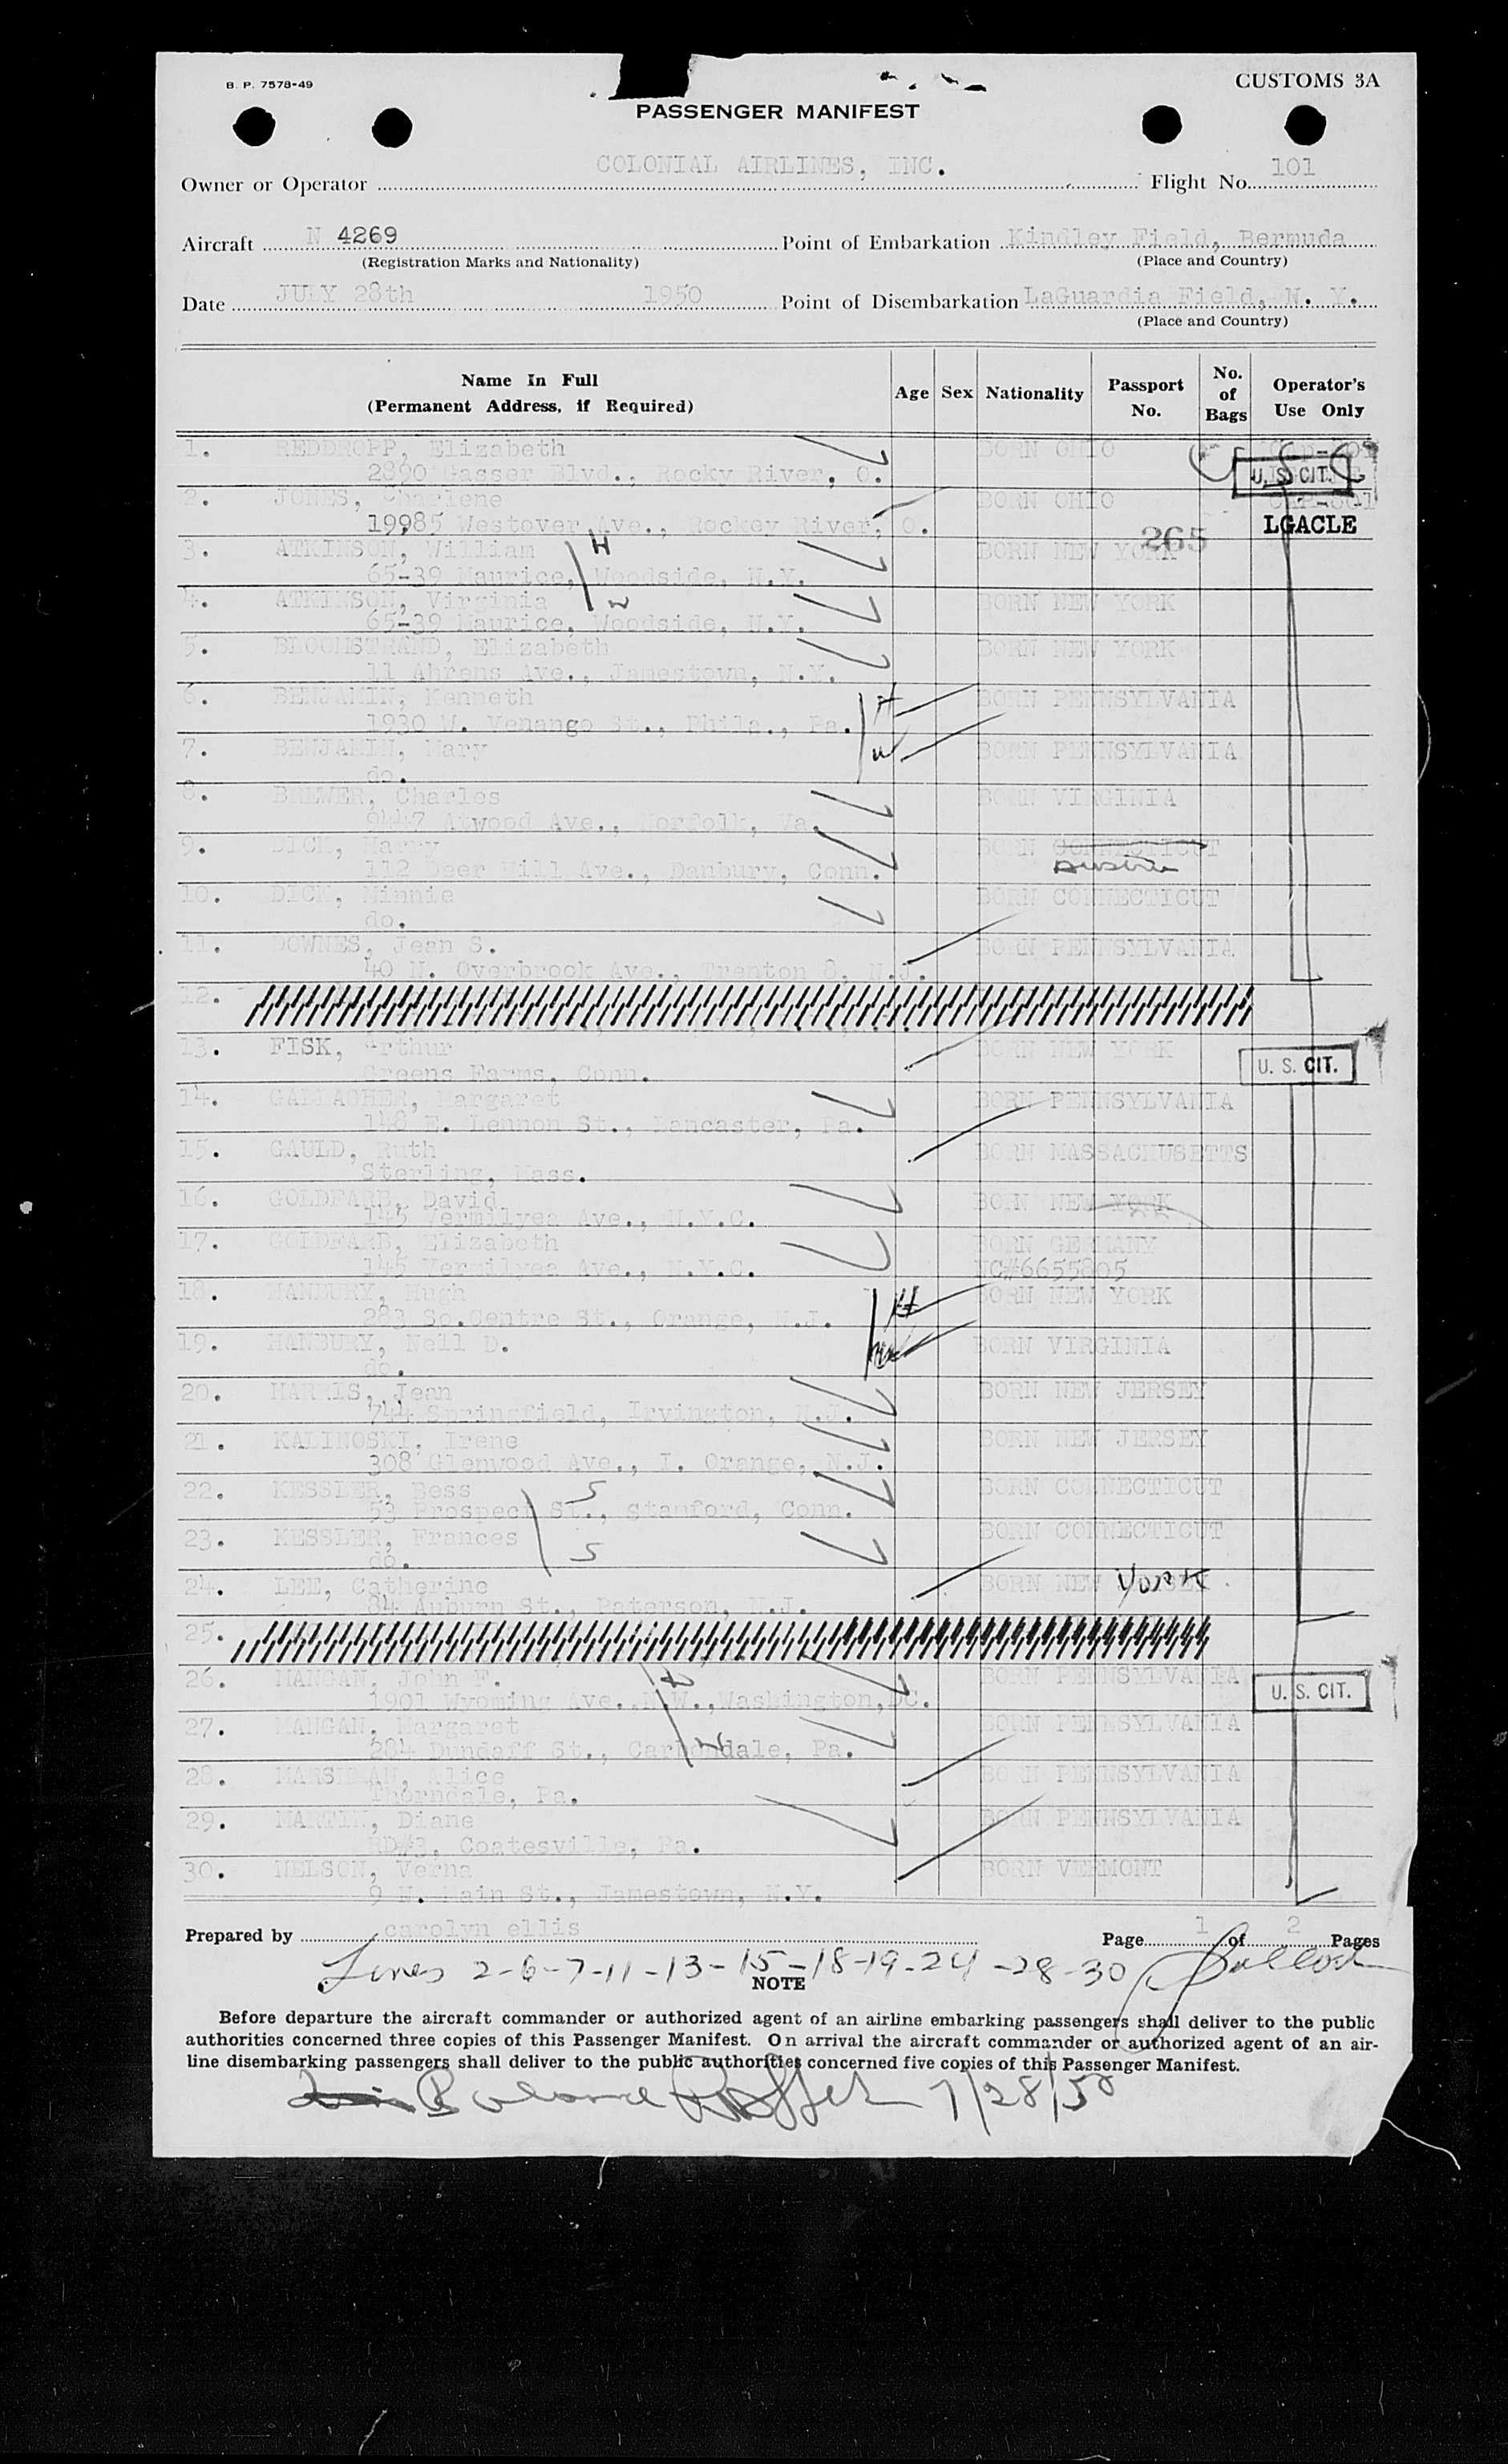 B. P. 7578-49
CUSTOMS 3A
PASSENGER MANIFEST
Owner or Operator COLONIAL AIRLINES, INC. Flight No. 101
Aircraft N 4269 Point of Embarkation Kindley Field, Bermuda
(Registration Marks and Nationality) (Place and Country)
Date JULY 28th 1950 Point of Disembarkation LaGuardia Field, N. Y.
(Place and Country)
Name In Full (Permanent Address, if Required) Age Sex Nationality Passport No. No. of Bags Operator's Use Only
1. REDDROPP, Elizabeth BORN OHIO
2890 Gasser Blvd., Rocky River, O. U. S. CIT.
2. JONES, Charlene BORN OHIO
19985 Westover Ave., Rockey River, O. 265 LGACLE
3. ATKINSON, William H BORN NEW YORK
65-39 Maurice, Woodside, N.Y.
4. ATKINSON, Virginia W BORN NEW YORK
65-39 Maurice, Woodside, N.Y.
5. BLOOMSTRAND, Elizabeth BORN NEW YORK
11 Ahrens Ave., Jamestown, N.Y.
6. BENJAMIN, Kenneth H BORN PENNSYLVANIA
1930 W. Venango St., Phila., Pa.
7. BENJAMIN, Mary W BORN PENNSYLVANIA
do.
8. BREWER, Charles BORN VIRGINIA
9447 Atwood Ave., Norfolk, Va.
9. DICK, Harry BORN CONNECTICUT
112 Deer Hill Ave., Danbury, Conn. Austria
10. DICK, Minnie BORN CONNECTICUT
do.
11. DOWNES, Jean S. BORN PENNSYLVANIA
40 N. Overbrook Ave., Trenton 8, N.J.
12.
13. FISK, Arthur BORN NEW YORK
Greens Farms, Conn. U. S. CIT.
14. GALLAGHER, Margaret BORN PENNSYLVANIA
148 E. Lennon St., Lancaster, Pa.
15. GAULD, Ruth BORN MASSACHUSETTS
Sterling, Mass.
16. GOLDFARB, David BORN NEW YORK
145 Vermilyea Ave., N.Y.C.
17. GOLDFARB, Elizabeth BORN GERMANY
145 Vermilyea Ave., N.Y.C. NC#6655805
18. HANBURY, Hugh H BORN NEW YORK
283 So.Centre St., Orange, N.J.
19. HANBURY, Nell D. BORN VIRGINIA
do.
20. HARRIS, Jean BORN NEW JERSEY
744 Springfield, Irvington, N.J.
21. KALINOSKI, Irene BORN NEW JERSEY
308 Glenwood Ave., I. Orange, N.J.
22. KESSLER, Bess S BORN CONNECTICUT
53 Prospect St., Stanford, Conn.
23. KESSLER, Frances S BORN CONNECTICUT
do.
24. LEE, Catherine BORN NEW York
84 Auburn St., Paterson, N.J.
25.
26. MANGAN, John F. H BORN PENNSYLVANIA
1901 Wyoming Ave. N.W., Washington, DC. U. S. CIT.
27. MANGAN, Margaret W BORN PENNSYLVANIA
284 Dundaff St., Carbondale, Pa.
28. Alice BORN PENNSYLVANIA
Thorndale, Pa.
29. MARTIN, Diane BORN PENNSYLVANIA
RD#3, Coatesville, Pa.
30. NELSON, Verna BORN VERMONT
9 N. Main St., Jamestown, N.Y.
Prepared by carolyn ellis Page 1 of 2 Pages
Lines 2-6-7-11-13-15-18-19-24-28-30
NOTE
Before departure the aircraft commander or authorized agent of an airline embarking passengers shall deliver to the public
authorities concerned three copies of this Passenger Manifest. On arrival the aircraft commander or authorized agent of an air-
line disembarking passengers shall deliver to the public authorities concerned five copies of this Passenger Manifest.
7/28/50